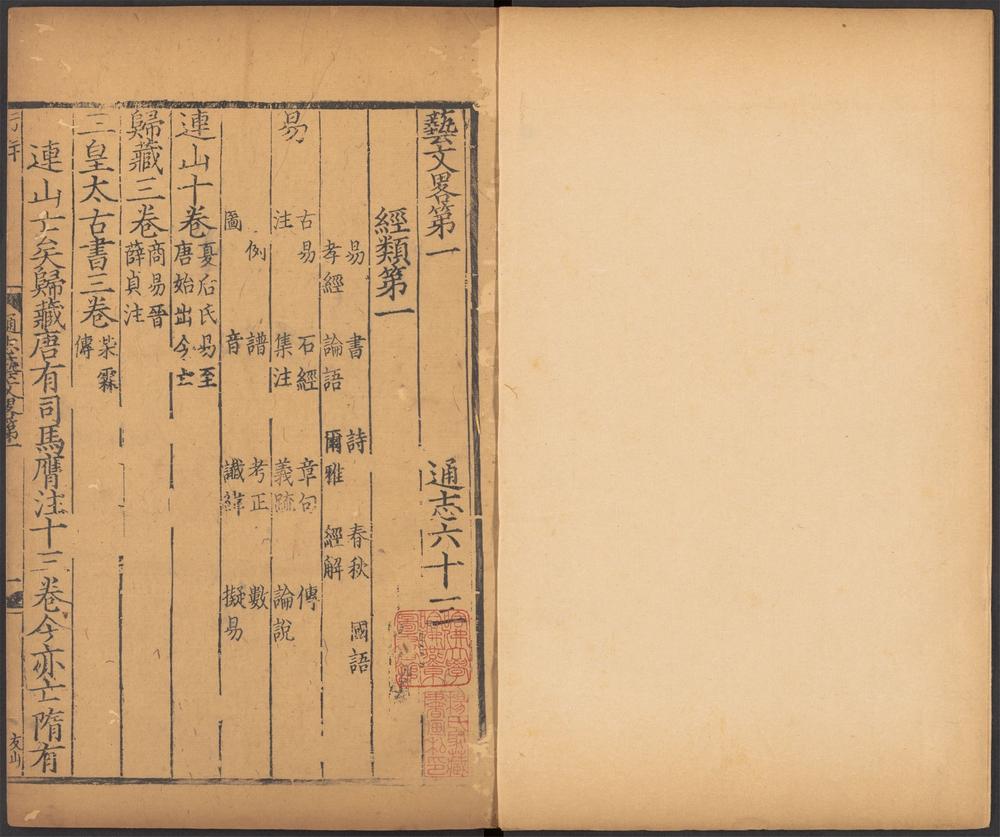 藝文畧第一　通志六十三
經類第一
易　書　詩　春秋　國語
孝經　論語　爾雅　經解
易
古易　石經　章句　傳
注　集注　義疏　論說
例　譜　考正　數
圖　音　讖緯　擬易
連山十卷
夏后氏易至
唐始出今亡
歸藏三卷
商易晉
薛貞注
三皇太古書三卷
傳
連山亡矣歸藏唐有司馬膺注十三卷今亦亡隋有
通志藝文畧第一
一
友山